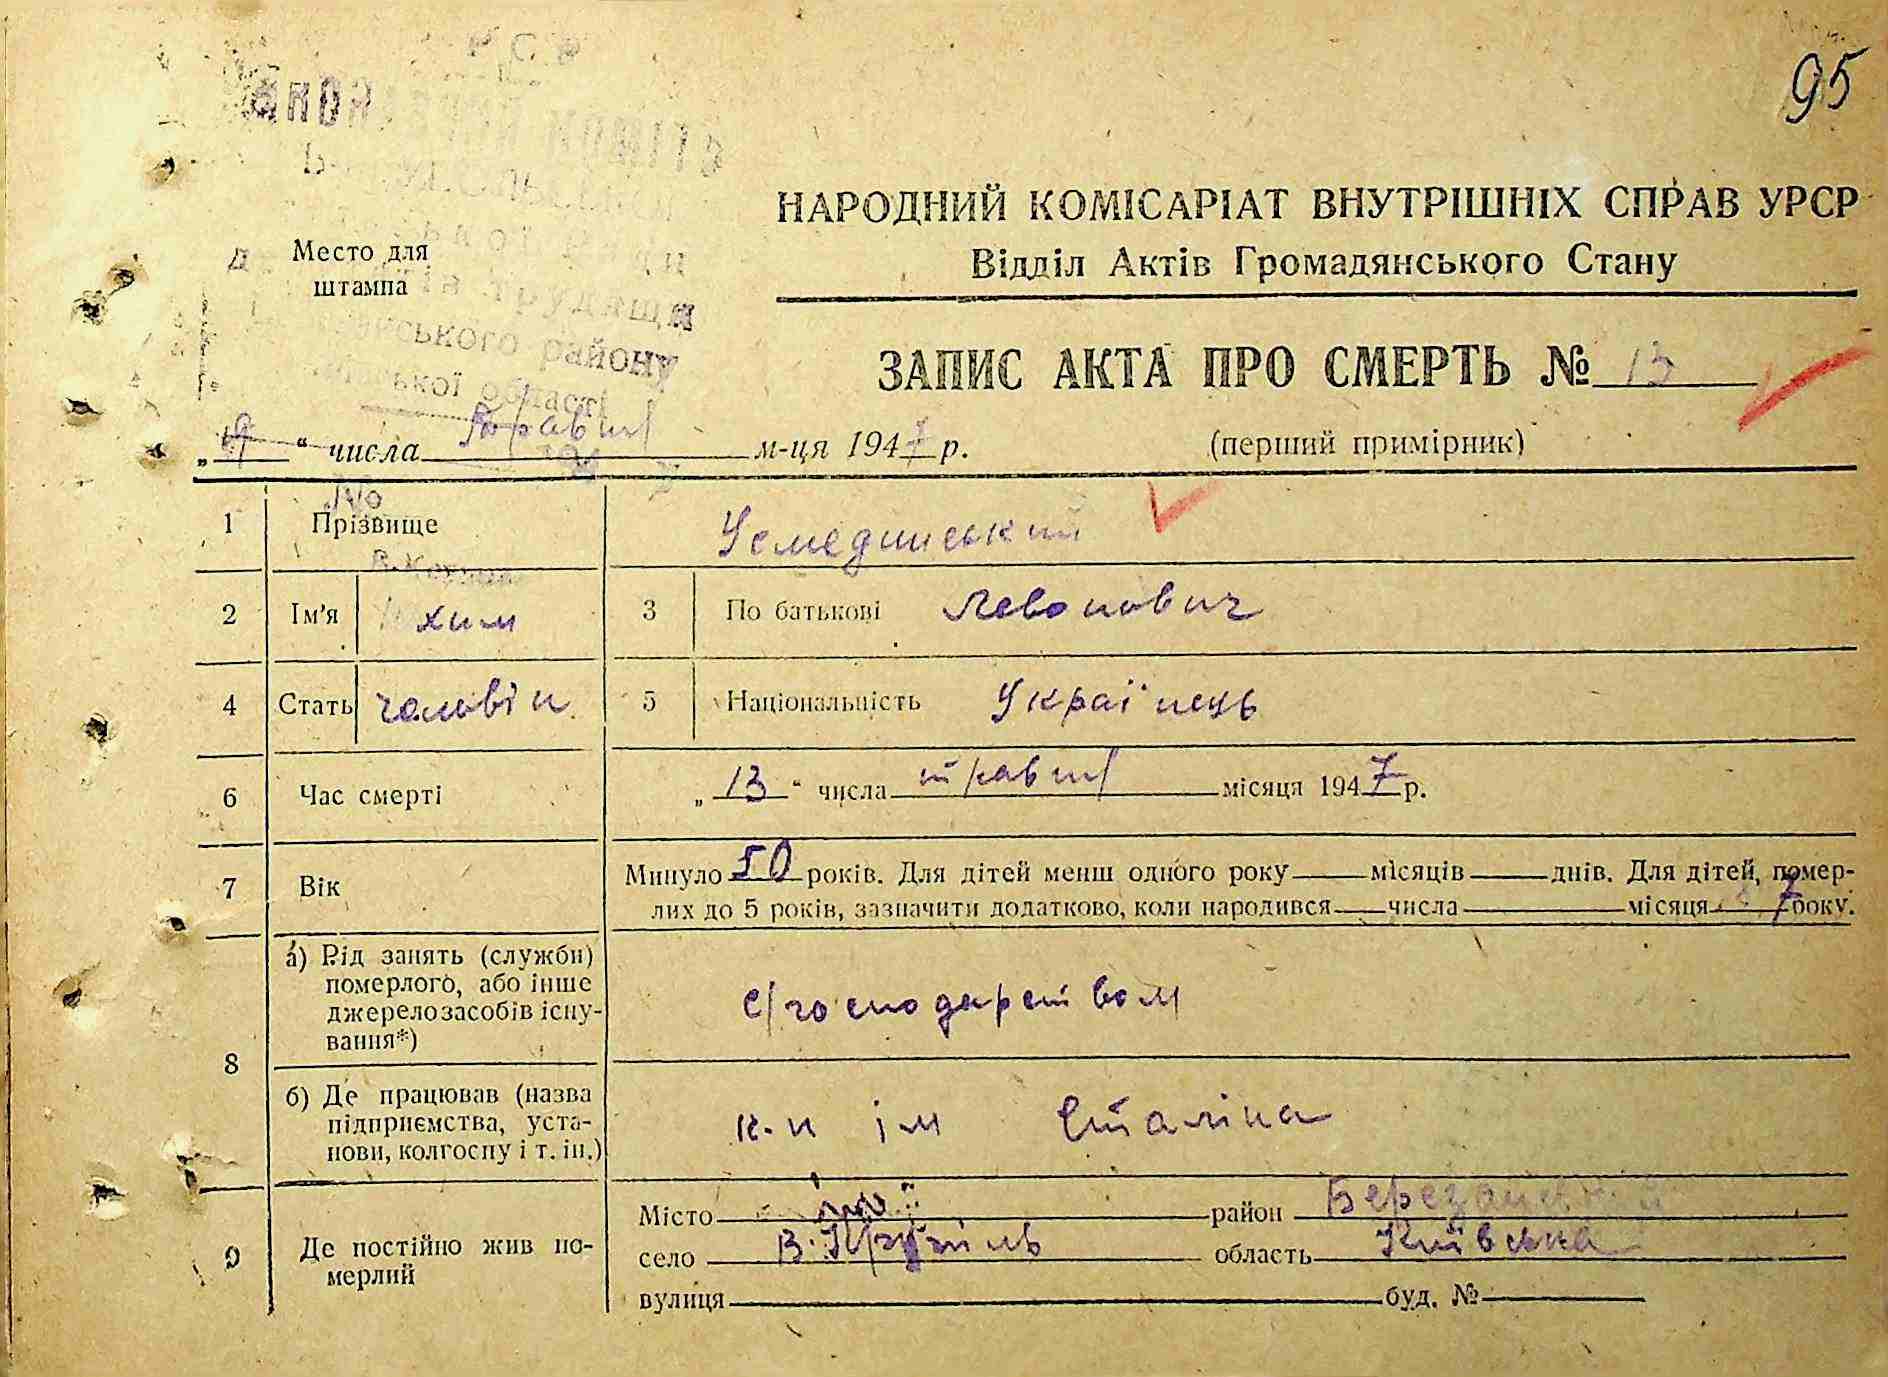 95
НАРОДНИЙ КОМІСАРІАТ ВНУТРІШНІХ СПРАВ УРСР
Відділ Актів Громадянського Стану
Место для
штампа
трудящи
ського району
ської області
ЗАПИС АКТА ПРО СМЕРТЬ № 13
„19“ числа травня м-ця 1947 р.
(перший примірник)
№
1 Прізвище Усмединський
2 Ім'я Юхим 3 По батькові Левонович
4 Стать чоловік 5 Національність Українець
6 Час смерті „13“ числа травня місяця 1947 р.
7 Вік Минуло 50 років. Для дітей менш одного року — місяців — днів. Для дітей, помер-
лих до 5 років, зазначити додатково, коли народився — числа — місяця року.
8 а) Рід занять (служби)
померлого, або інше
джерело засобів існу-
вання*)
с/господарством
б) Де працював (назва
підприємства, уста-
нови, колгоспу і т. ін.)
к-п ім Сталіна
9 Де постійно жив по-
мерлий
Місто район Березанський
село В. Крупіль область Київська
вулиця буд. №